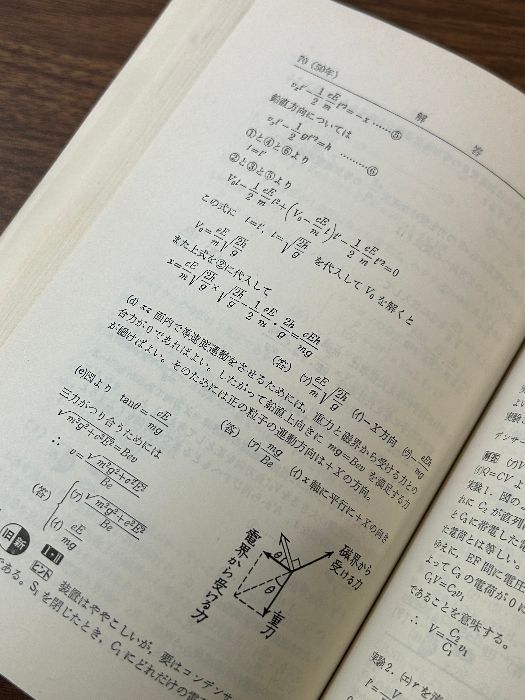 70 (50年)
解 答
v₂t′−1/2 eE/m t′²=−x ……⑤
鉛直方向については
v₃t′−1/2 gt′²=h ………⑥
①と④と⑥より
t=t′
②と③と⑤より
V₀t−1/2 eE/m t²+(V₀−eE/m t)t′−1/2 eE/m t′²=0
この式に t=t′, t=√2h/g を代入して V₀ を解くと
V₀=eE/m √2h/g
また上式を②に代入して
x=eE/m √2h/g × √2h/g −1/2 eE/m・2h/g=eEh/mg
(答) (ア) eE/m √2h/g (イ)−X方向 (ウ)−eEh/mg
(d) xz 面内で等速度運動をさせるためには、重力と磁界から受ける力との
合力が0であればよい。したがって鉛直上向きに mg=Bev を満足する力
が働けばよい。そのためには正の粒子の運動方向は+Xの方向。
(答) (ア) mg/Be (イ) x 軸に平行に+Xの向き
(e)図より tanθ=−eE/mg
三力がつり合うためには
√m²g²+e²E²=Bev
∴ v=√m²g²+e²E²/Be
(答) (ア) √m²g²+e²E²/Be
(イ) −eE/mg
磁界から
受ける力
θ
θ
重力
電界から受ける力
旧 新 Ⅰ・Ⅱ
ヒント 装置はややこしいが、要はコンデンサ
である。S₁を閉じたとき、C₁にどれだけの電
実験
デンサー
解答 (ア)
(イ)Q=CV よ
実験1. 図の
れに C₂ が直列
とC₃に帯電した電
た電荷とは等しい。
ゆえに、EF 間に電圧
よって C₃ の電荷が 0 に
C₁V=C₂v₁
であることを意味する。
∴ V=C₂/C₁ v₁
実験2. (エ) r を